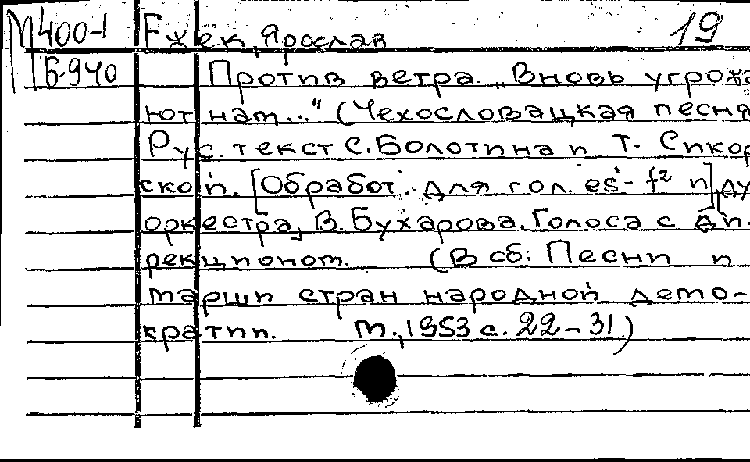 М400-1 Ежек, Ярослав 19
Б-940 Против ветра. „Вновь угрожа
ют нам..." (Чехословацкая песня
Рус. текст С. Болотина и Т. Сикор
ской. [Обработ. для гол. es'-f² и ду
оркестра, В. Бухарова. Голоса с ди-
рекционом. (В сб: Песни и
марши стран народной демо-
кратии. М., 1953 с. 22-31)